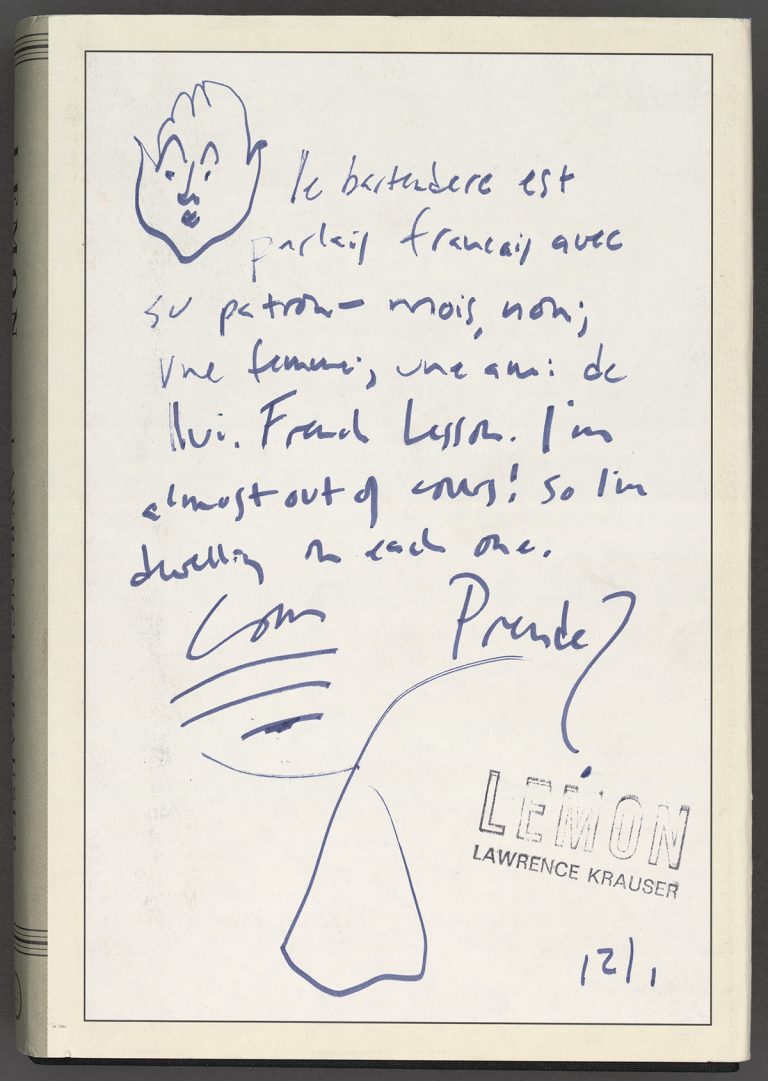 le bartendere est
parlais francais avec
su patron – mois, non;
une femme, une ami de
llui. French Lesson. I'm
almost out of covers! so I'm
dwelling on each one.
Com Prende?
LEMON
LAWRENCE KRAUSER
12/1
LEMON LAWRENCE KRAUSER